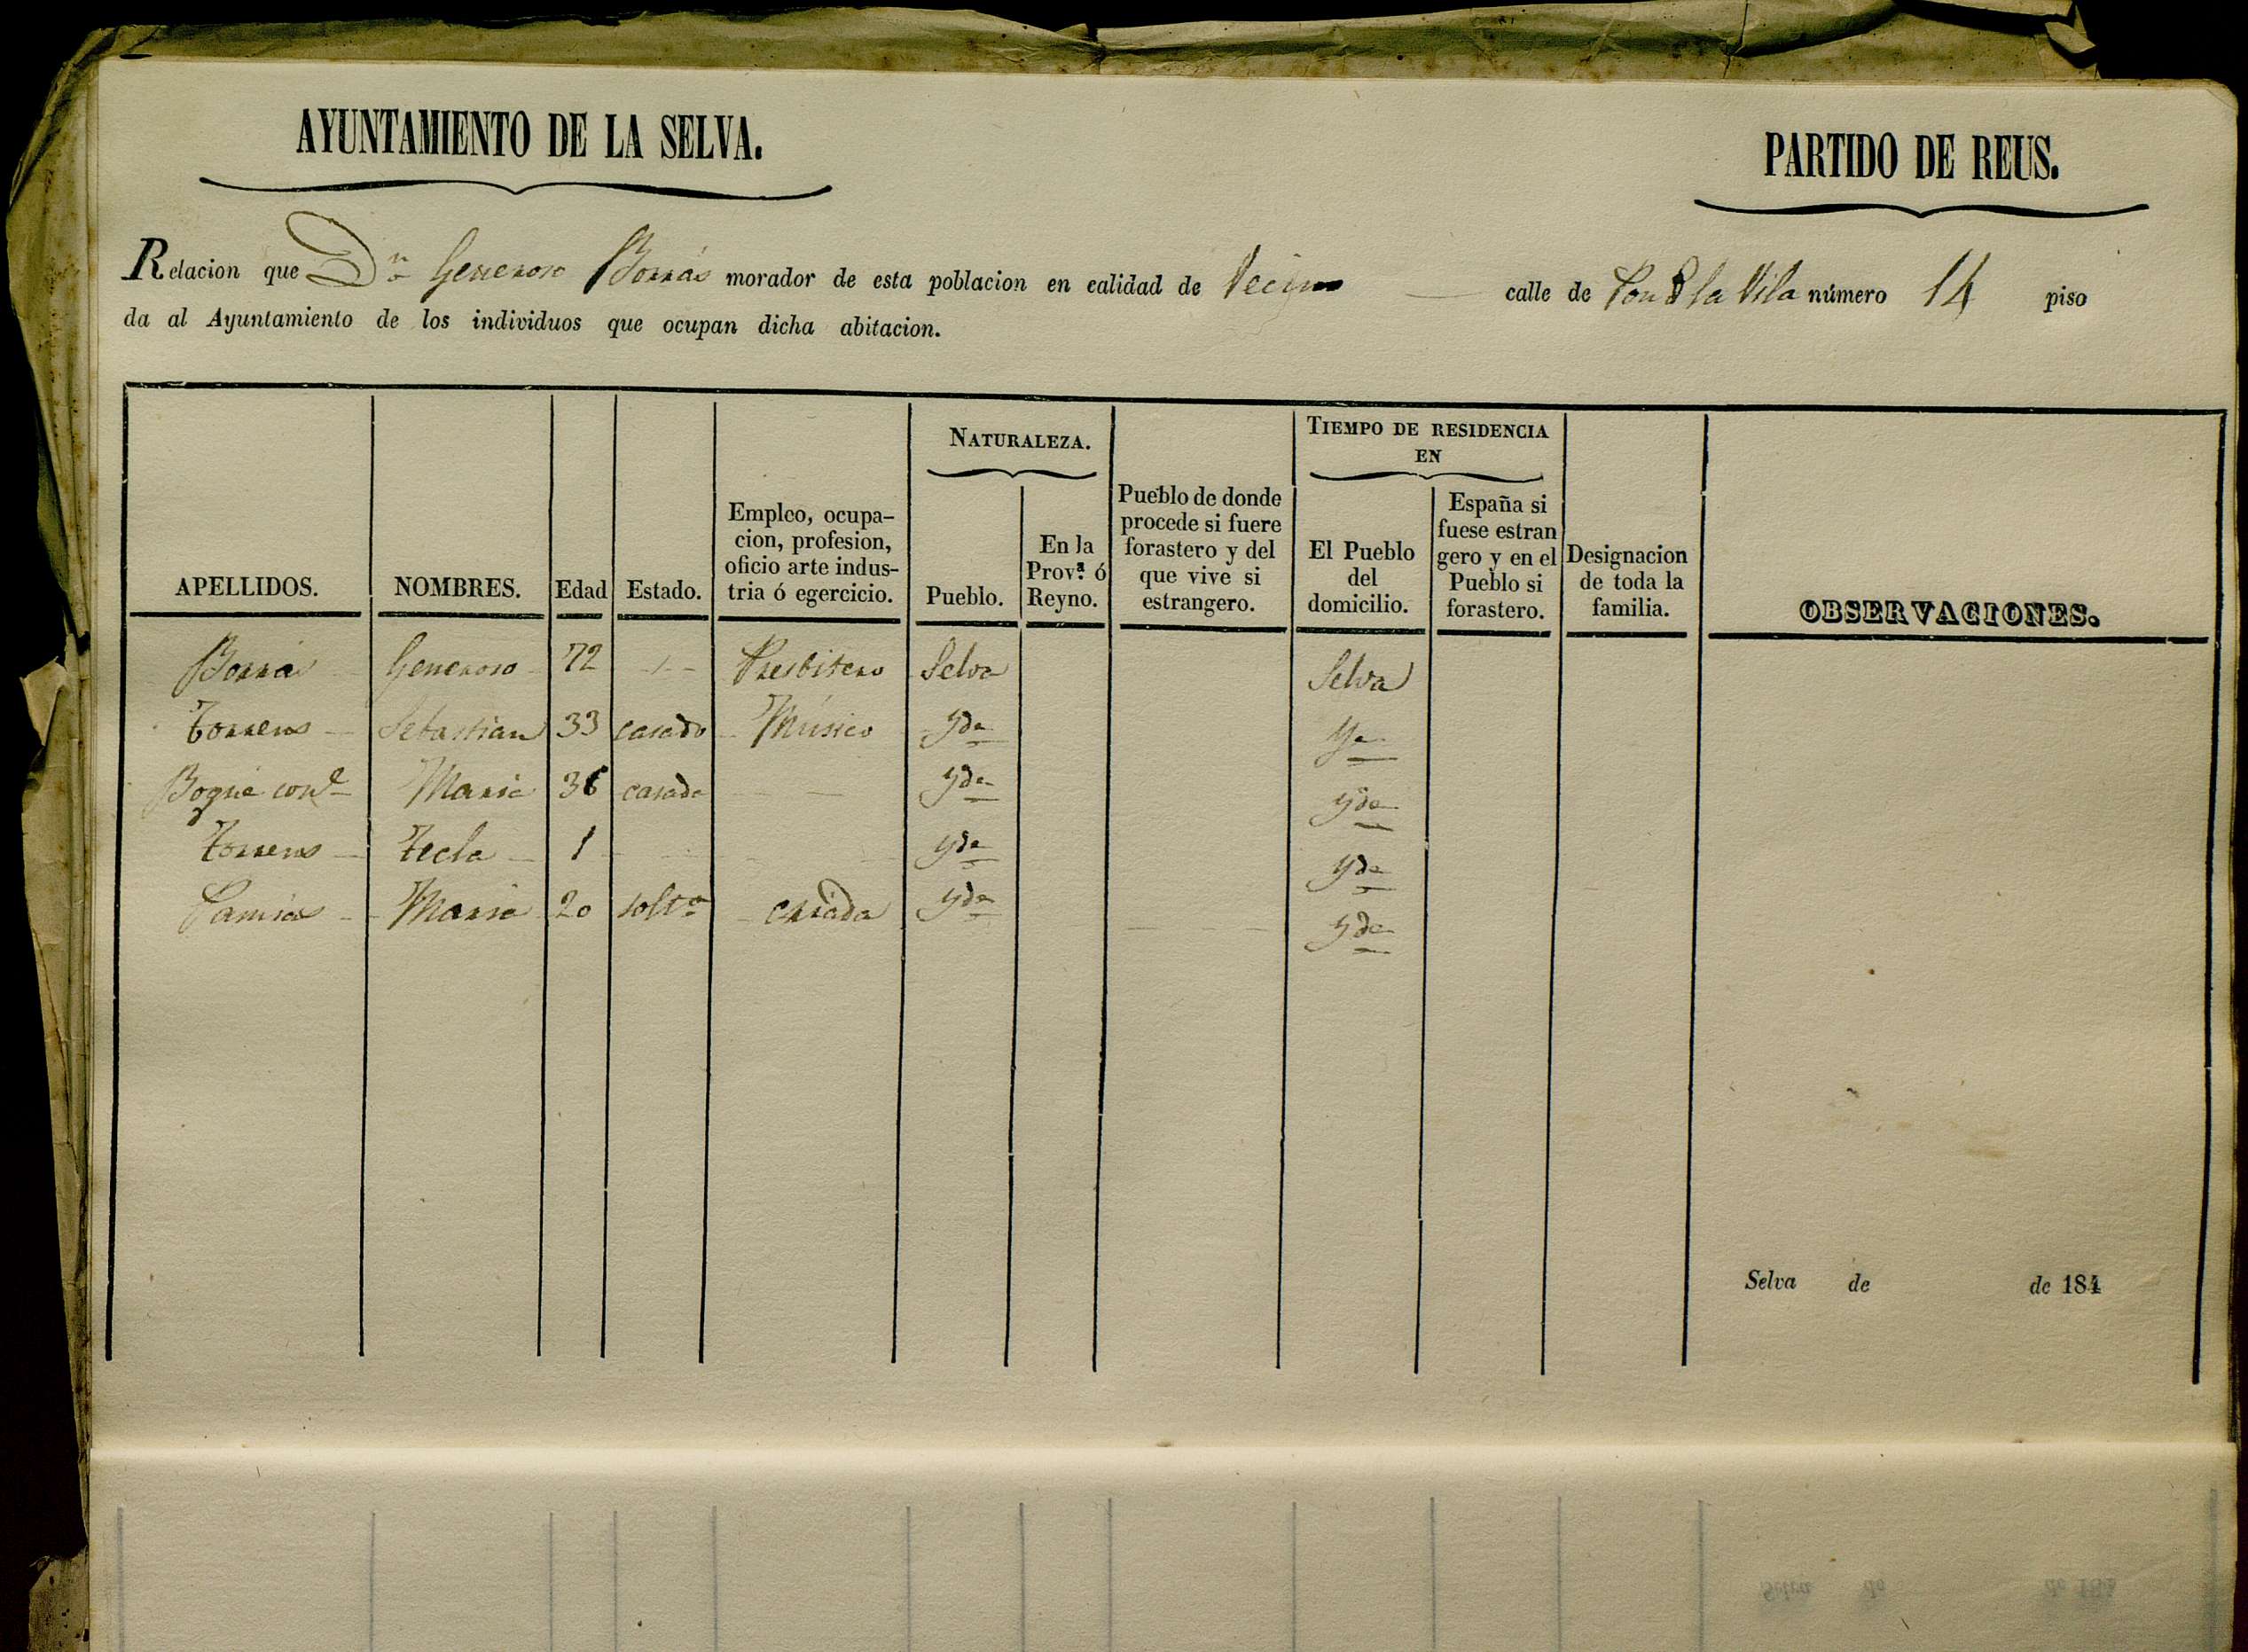 AYUNTAMIENTO DE LA SELVA.
PARTIDO DE REUS.
Relacion que Dn Generoso Borrás morador de esta poblacion en calidad de Vecino calle de Pou d la Vila número 14 piso
da al Ayuntamiento de los individuos que ocupan dicha abitacion.
NATURALEZA.
TIEMPO DE RESIDENCIA
EN
APELLIDOS. NOMBRES. Edad Estado. Empleo, ocupa-
cion, profesion,
oficio arte indus-
tria ó egercicio.
Pueblo. En la
Prov.ª ó
Reyno.
Pueblo de donde
procede si fuere
forastero y del
que vive si
estrangero.
El Pueblo
del
domicilio.
España si
fuese estran
gero y en el
Pueblo si
forastero.
Designacion
de toda la
familia.
OBSERVACIONES.
Borrás Generoso 72 Presbitero Selva Selva
Torrens Sebastian 33 casado Músico yda ya
Bogué Maria 36 casada yda yda
Torrens Tecla 1 yda yda
Pamias Maria 20 solta criada yda yda
Selva de de 184